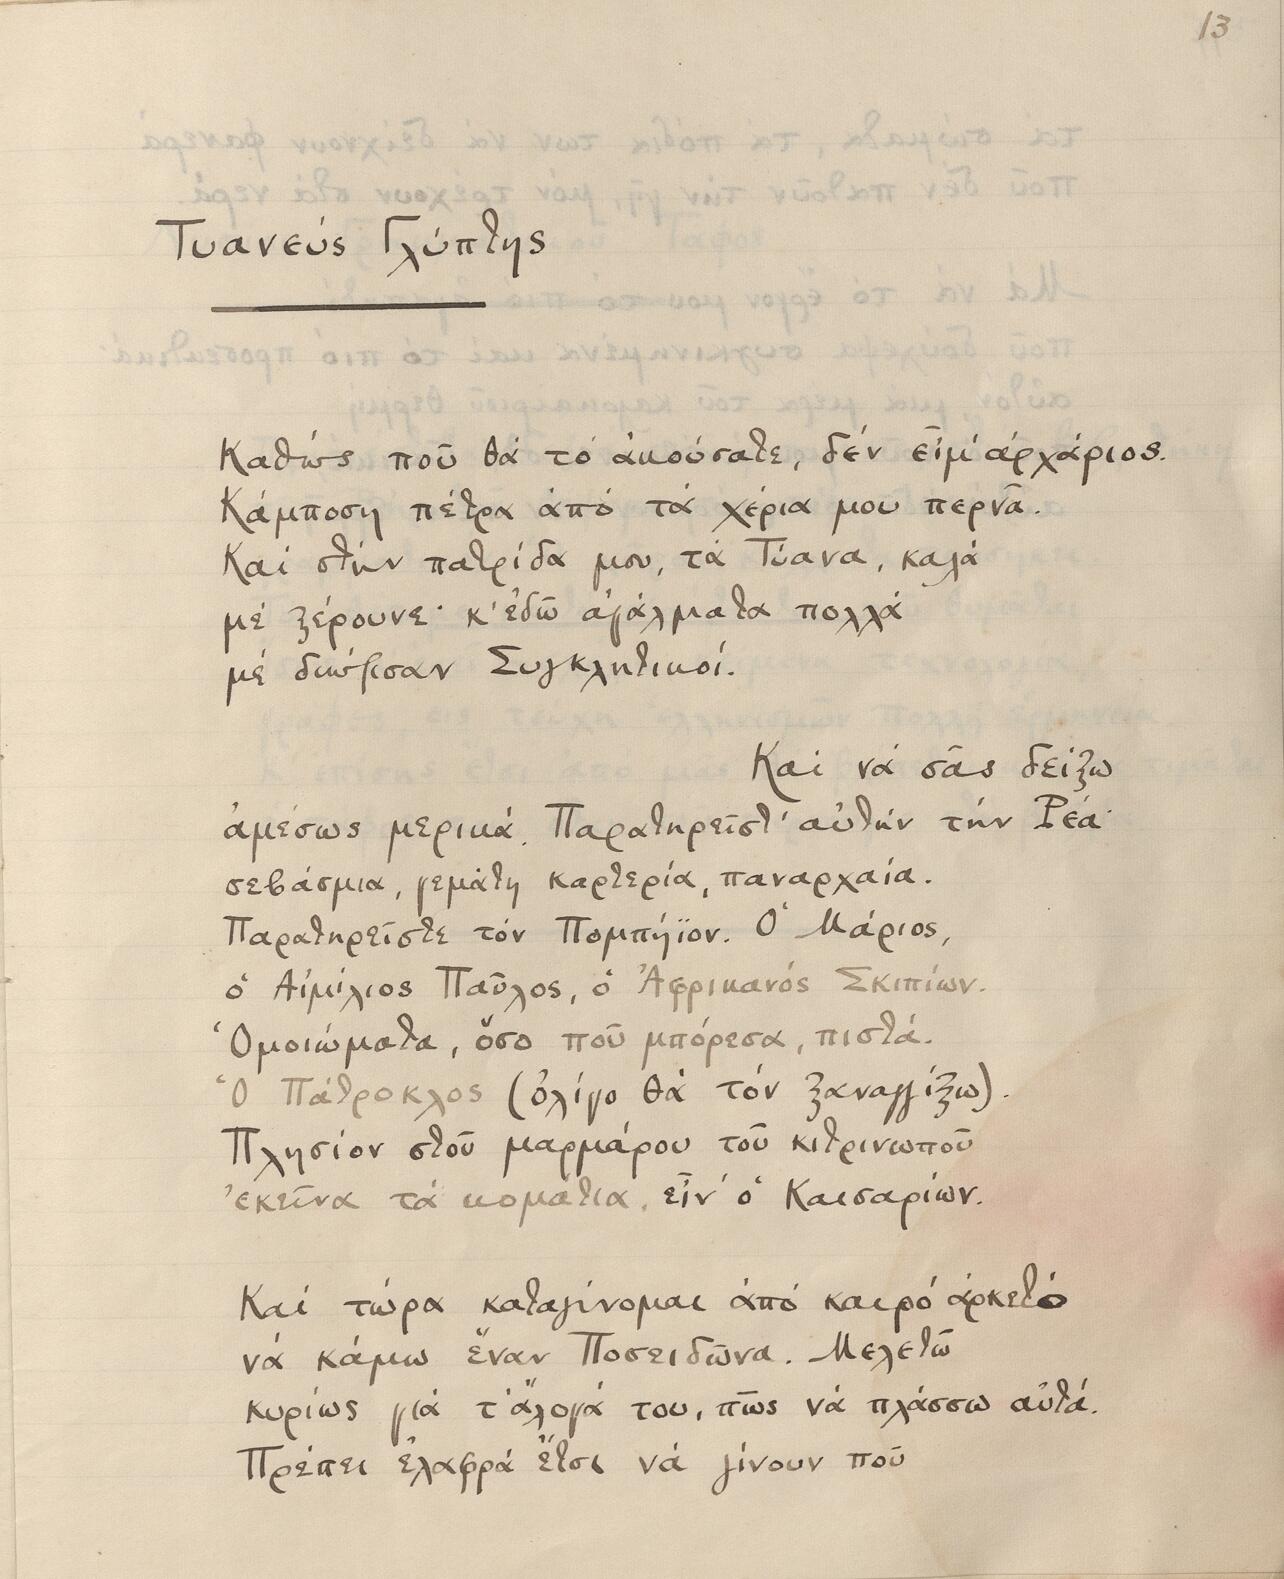 13
Τυανεύς Γλύπτης
Καθώς ποῦ θά τό ἀκούσατε, δέν εἶμ' ἀρχάριος.
Κάμποση πέτρα ἀπό τά χέρια μου περνᾶ.
Καί στήν πατρίδα μου, τά Τύανα, καλά
μέ ξέρουνε· κ' ἐδῶ ἀγάλματα πολλά
μέ Συγκλητικοί.
Καί νά σᾶς δείξω
ἀμέσως μερικά. Παρατηρεῖστ' αὐτήν τήν Ρέα·
σεβάσμια, γεμάτη καρτερία, παναρχαία.
Παρατηρεῖστε τόν Πομπήϊον. Ὁ Μάριος,
ὁ Αἰμίλιος Παῦλος, ὁ Ἀφρικανός Σκιπίων.
Ὁμοιώματα, ὅσο ποῦ μπόρεσα, πιστά.
Ὁ Πάτροκλος (ὀλίγο θά τόν ξαναγγίξω).
Πλησίον στοῦ μαρμάρου τοῦ κιτρινωποῦ
ἐκεῖνα τά κομάτια, εἶν' ὁ Καισαρίων.
Καί τώρα καταγίνομαι ἀπό καιρό ἀρκετό
νά κάμω ἕναν Ποσειδῶνα. Μελετῶ
κυρίως γιά τ' ἄλογά του, πῶς νά πλάσσω αὐτά.
Πρέπει ἐλαφρά ἔτσι νά γίνουν ποῦ